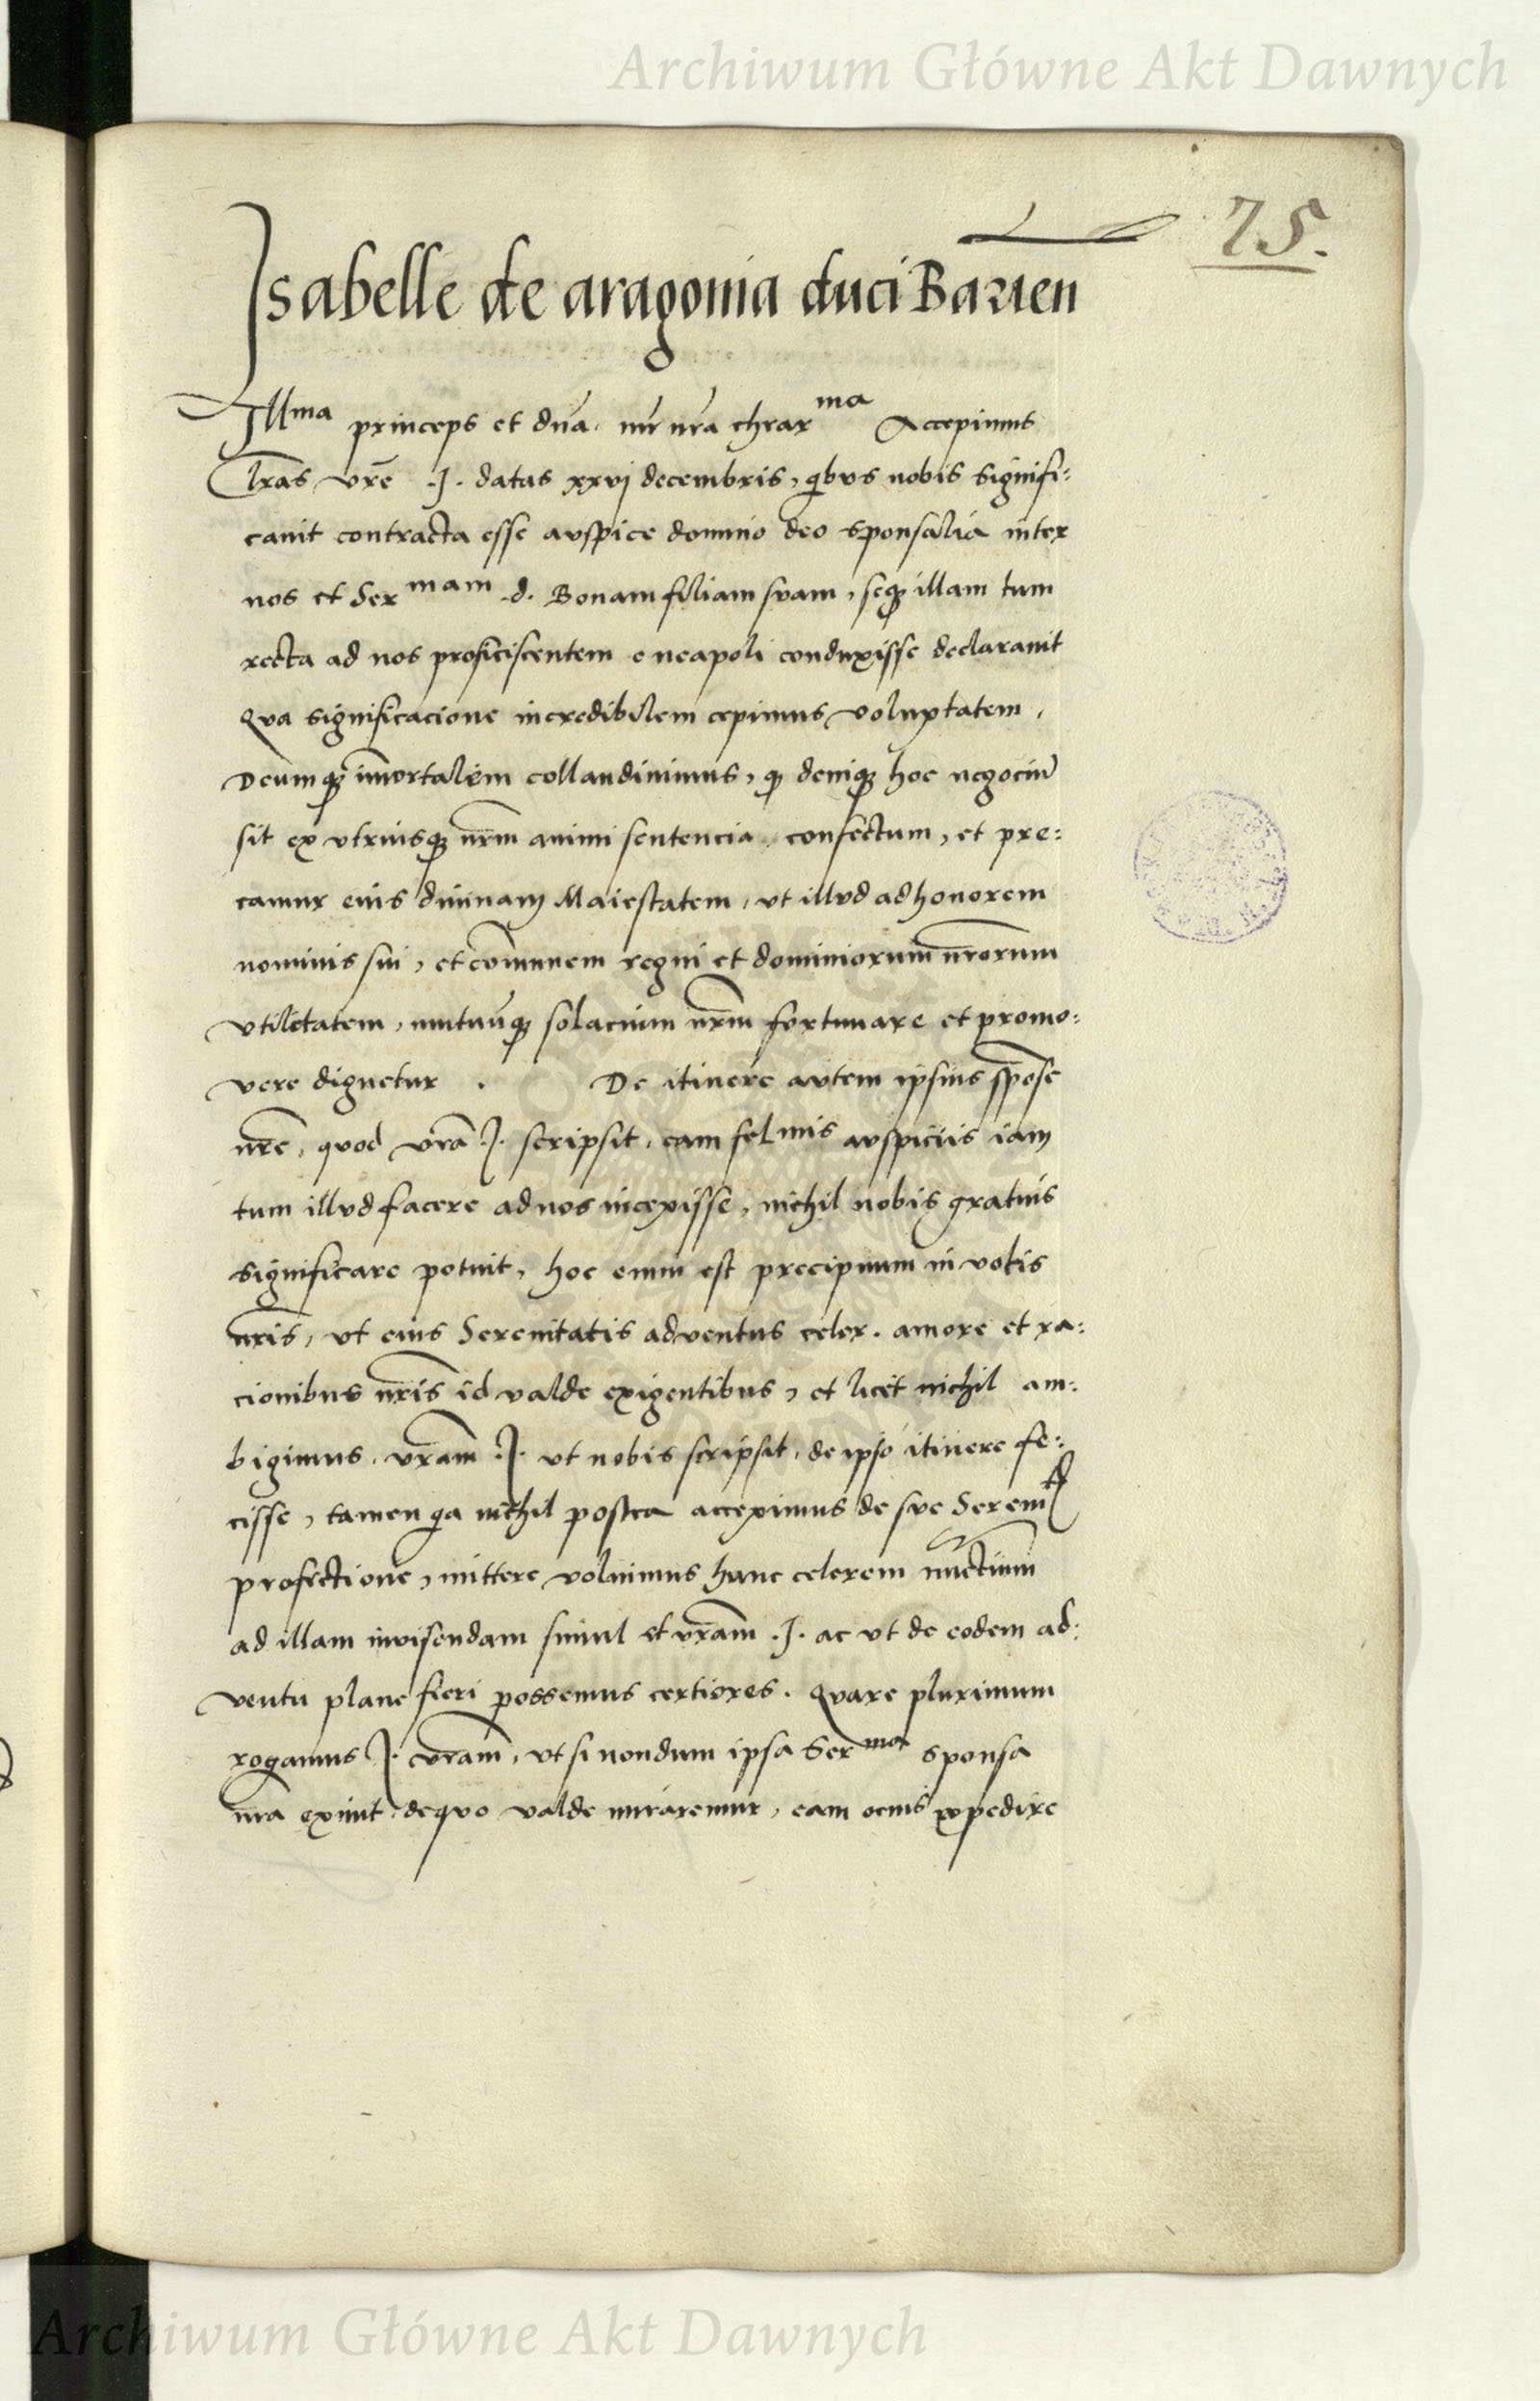 Archiwum Główne Akt Dawnych
75.
Isabelle de aragonia duci Barien
Illma princeps et dna. mr nra chrarma Accepimus
lras vre .I. datas xxvj decembris, qbvs nobis signifi:
cauit contracta esse avspice domino deo sponsalia inter
nos et Sermam .d. Bonam filiam svam, seqz illam tum
recta ad nos proficiscentem e neapoli conduxisse declarauit
Qva significacione incredibilem cepimus voluptatem,
Deumqz imortalem collaudiuimus, qz deniqz hoc negociu
sit ex vtriusqz nrm animi sentencia confectum, et pre:
camur eius diuinam Maiestatem, vt illvd ad honorem
nominis sui, et comunem regni et dominiorum nrorum
vtilitatem, mutuuqz solacium nrm fortunare et promo:
vere dignetur . De itinere avtem ipsius spose
nre, quod vra .I. scripsit, eam felmis avspiciis iam
tum illvd facere ad nos incepisse, nichil nobis gratius
significare potuit, hoc enim est precipuum in votis
nris, vt eius Serenitatis adventus celer. amore et ra:
cionibus nris id valde exigentibus, et licet nichil am:
bigimus, vram .I. vt nobis scripsit, de ipso itinere fe:
cisse, tamen qa nichil postea accepimus de sve Serenit
profectione, mittere voluimus hunc celerem nuctium
ad illam invisendam simul et vram .I. ac vt de eodem ad:
ventu plane fieri possemus certiores. Qvare plurimum
rogamus I. vram, vt si nondum ipsa Serma sponsa
nra exiuit, deqvo valde miraremur, eam ocius expedire
Archiwum Główne Akt Dawnych